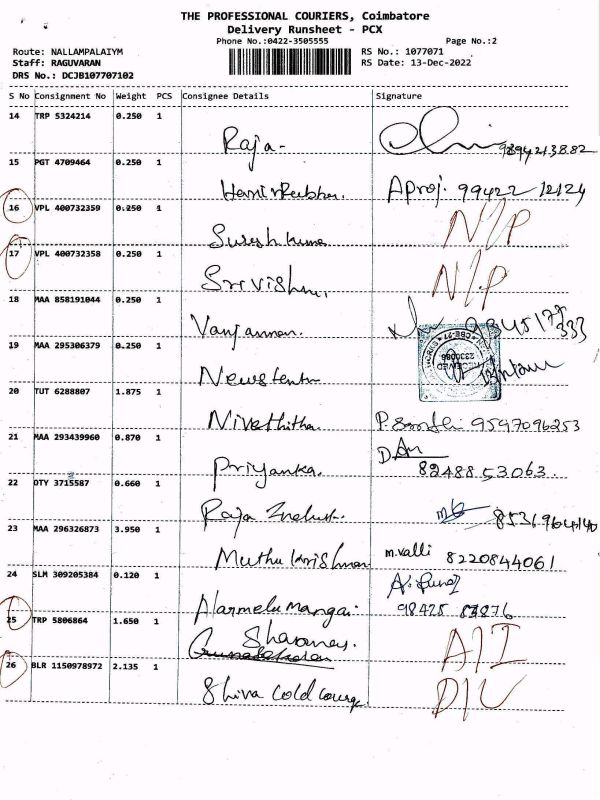 THE PROFESSIONAL COURIERS, Coimbatore
Delivery Runsheet - PCX
Phone No.:0422-3505555 Page No.:2
Route: NALLAMPALAIYM RS No.: 1077071
Staff: RAGUVARAN RS Date: 13-Dec-2022
DRS No.: DCJB107707102
S No Consignment No Weight PCS Consignee Details Signature
14 TRP 5324214 0.250 1
Raja- 9894213882
15 PGT 4709464 0.250 1
99422 12124
16 VPL 400732359 0.250 1 N/P
Suresh kumar
17 VPL 400732358 0.250 1 N/P
Srivishnu
18 MAA 858191044 0.250 1
Vanjamman. 98451 77333
19 MAA 295306379 0.250 1
20 TUT 6288807 1.875 1
Nivethitha P. 9597096253
21 MAA 293439960 0.870 1
Priyanka. 82488 53063.
22 OTY 3715587 0.660 1
Raja Indust. 8531964140
23 MAA 296326873 3.950 1
Muthu krishnan m.valli 8220844061
24 SLM 309205384 0.120 1
Alarmelu Mangai 98425 83876
25 TRP 5806864 1.650 1
A/I
26 BLR 1150978972 2.135 1
Shiva cold D/L